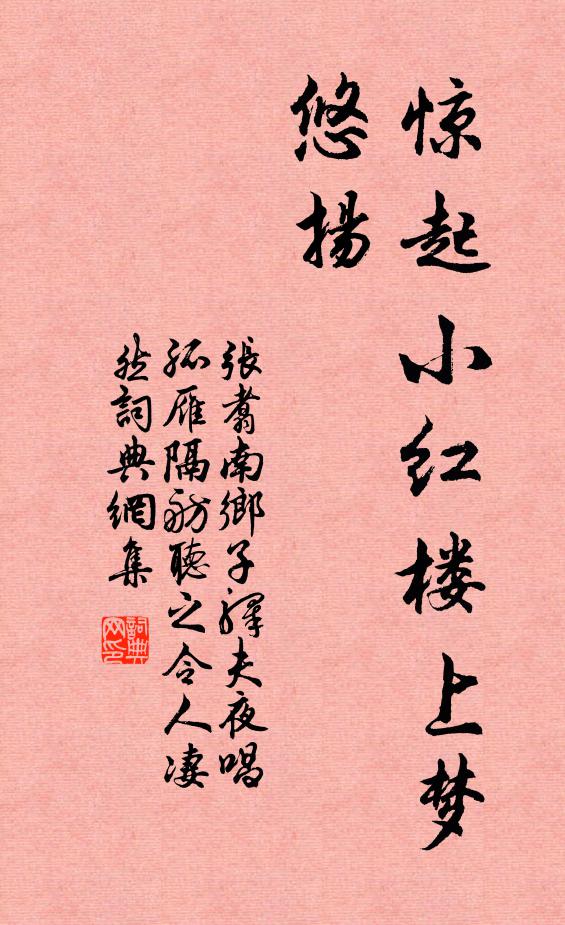 惊起小红楼上梦
悠揚
張翥南鄉子驛夫夜唱
孤雁隔舫聽之令人凄
然詞典網集
詞典
网印